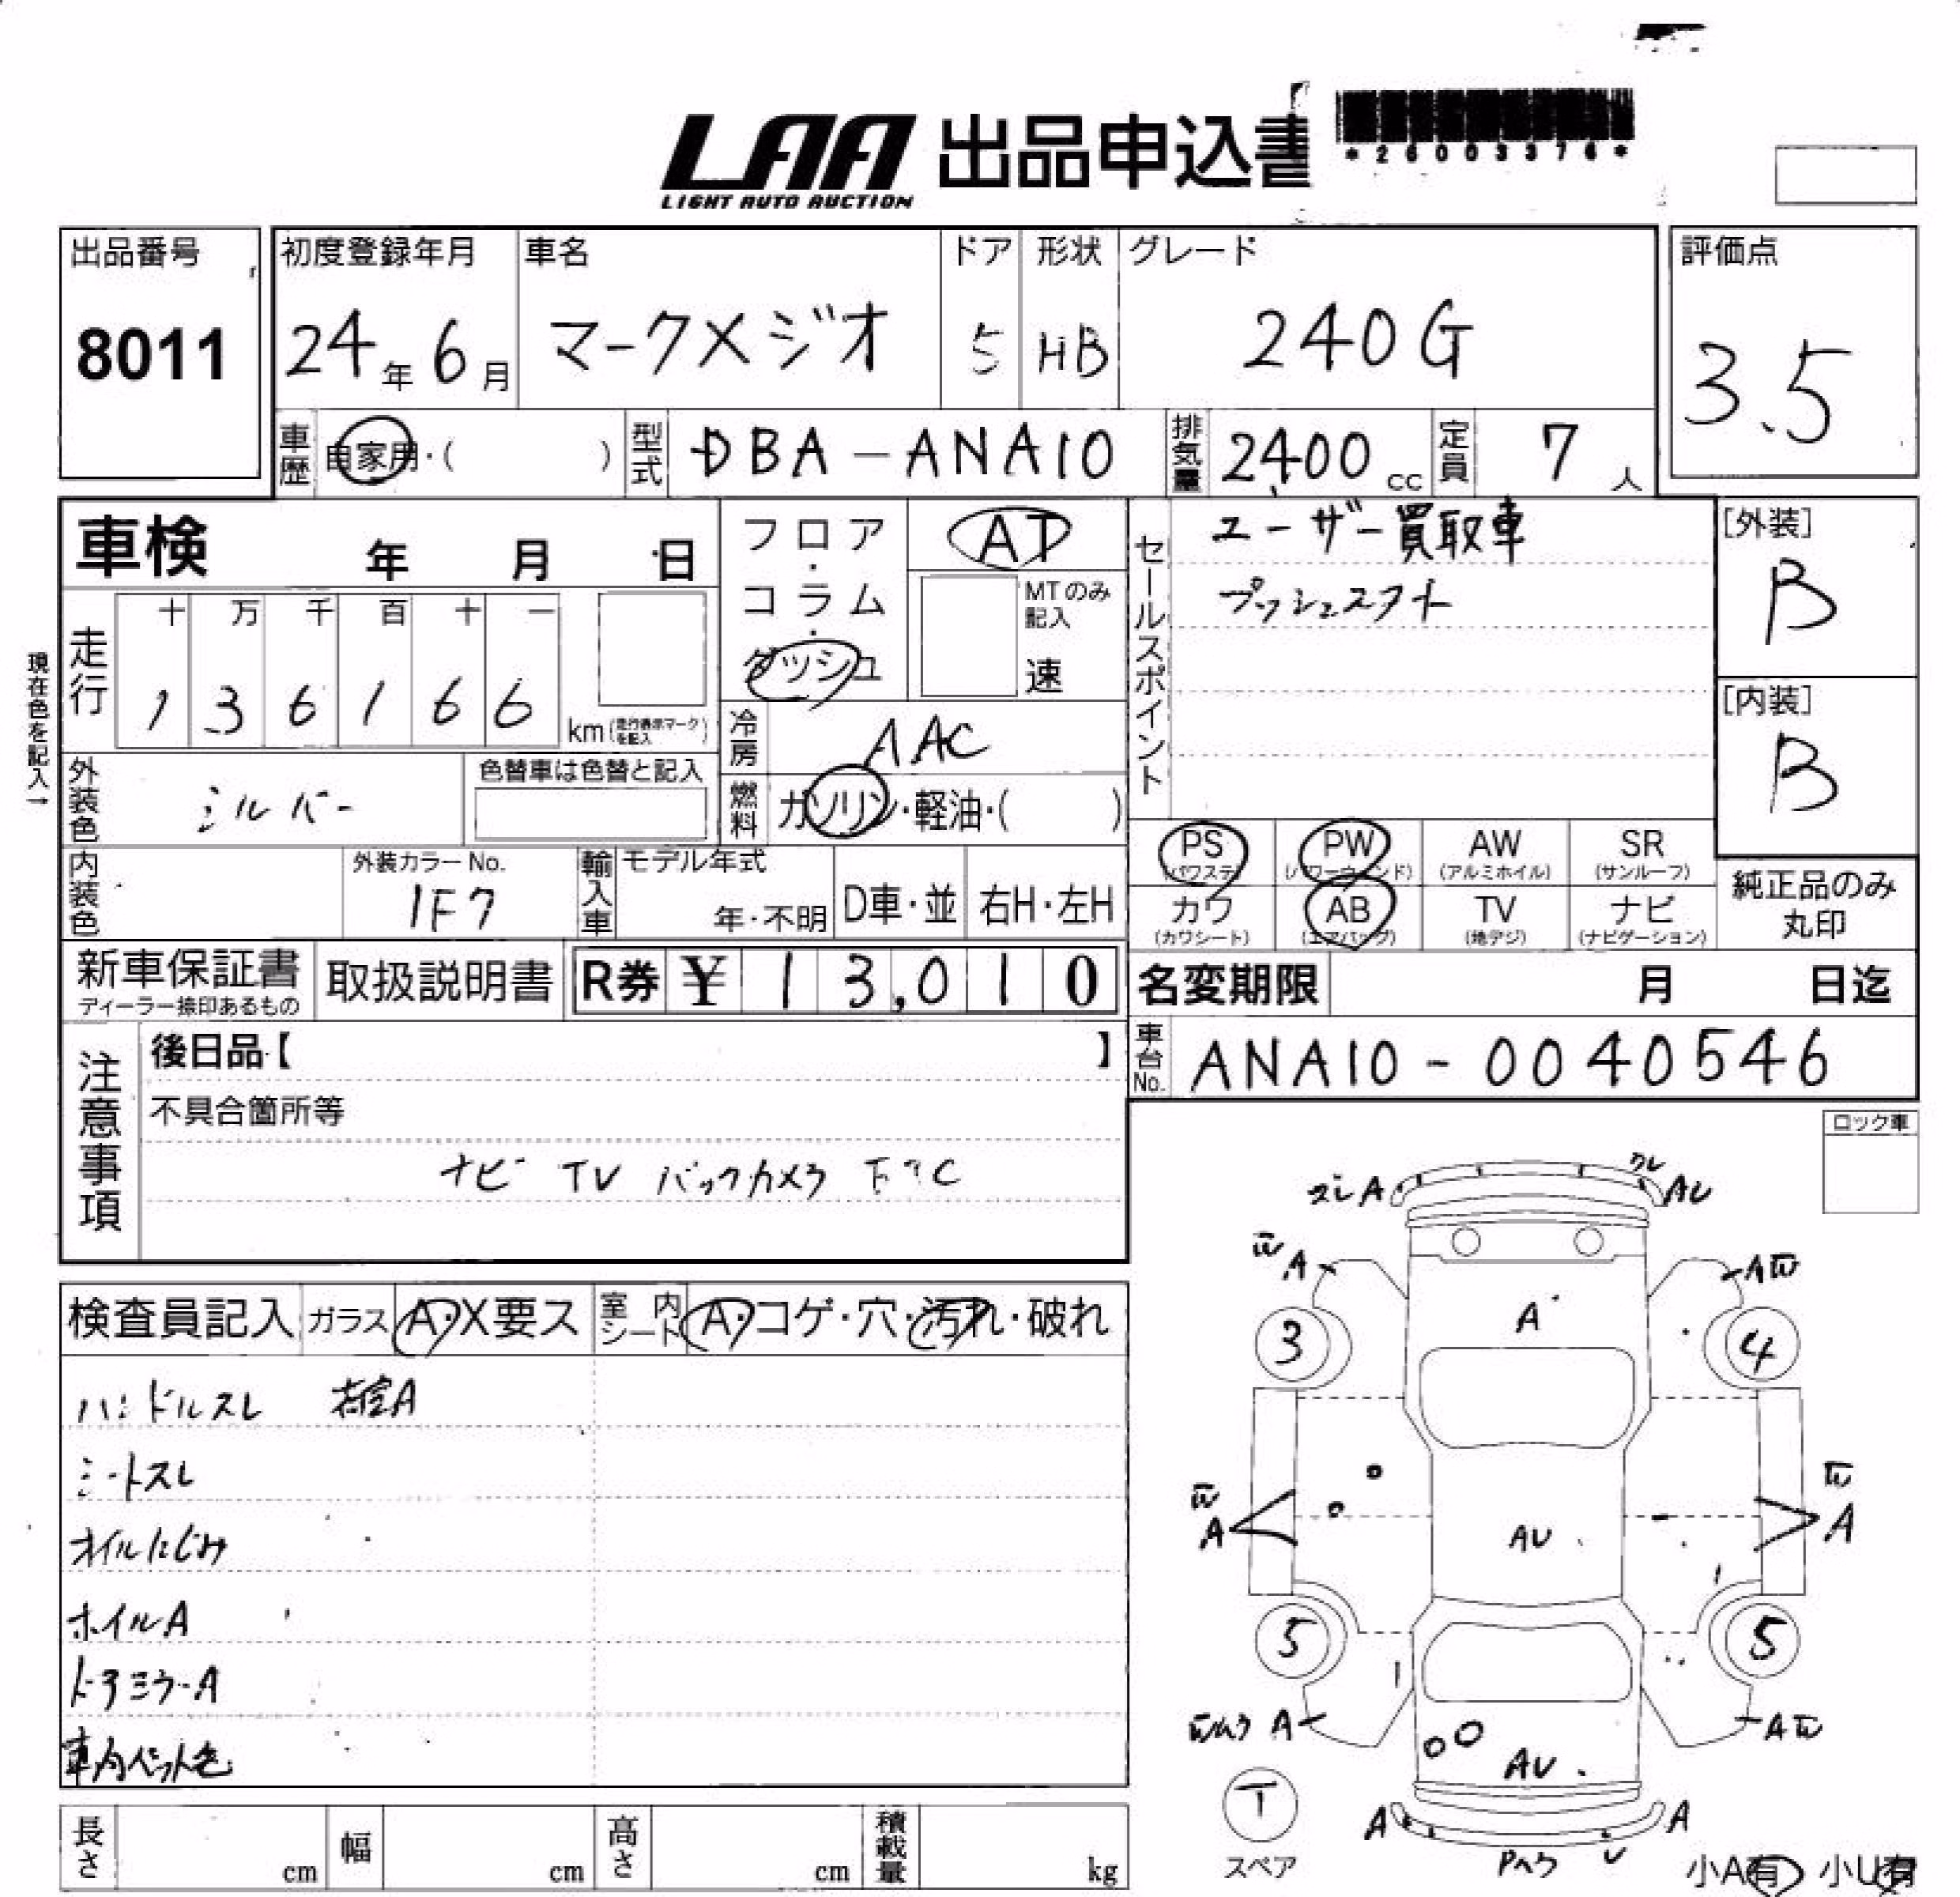 LAA 出品申込書
LIGHT AUTO AUCTION
*26003376*
出品番号
8011
初度登録年月
24年 6月
車名
マークXジオ
ドア
5
形状
HB
グレード
240G
評価点
3.5
車歴 自家用・( )
型式 DBA-ANA10
排気量 2400 cc
定員 7 人
車検 年 月 日
フロア・コラム・ダッシュ
AT
MTのみ記入
速
セールスポイント
ユーザー買取車
プッシュスタート
[外装]
B
[内装]
B
現在色を記入→
走行
十 万 千 百 十 一
1 3 6 1 6 6
km(走行表示マークを記入)
冷房 AAC
燃料 ガソリン・軽油・( )
外装色 シルバー
色替車は色替と記入
内装色
外装カラーNo.
1F7
輸入車
モデル年式
年・不明
D車・並
右H・左H
PS (パワステ)
PW (パワーウィンド)
AW (アルミホイル)
SR (サンルーフ)
カワ (カワシート)
AB (エアバッグ)
TV (地デジ)
ナビ (ナビゲーション)
純正品のみ丸印
新車保証書
ディーラー捺印あるもの
取扱説明書
R券 ¥ 13,010
名変期限 月 日迄
車台No. ANA10-0040546
注意事項
後日品【 】
不具合箇所等
ナビ TV バックカメラ
ロック車
検査員記入
ガラス A・X要ス
室内シート A・コゲ・穴・汚れ・破れ
ハンドルスレ 荷室A
シートスレ
オイルにじみ
ホイルA
ドアミラーA
車内ペット色
スレ A
AU
A
A
A
3
4
A
A
AU
A
5
5
A
A
AU
T
スペア
A
A
Pヘラ
U
小A有 小U有
長さ cm
幅 cm
高さ cm
積載量 kg